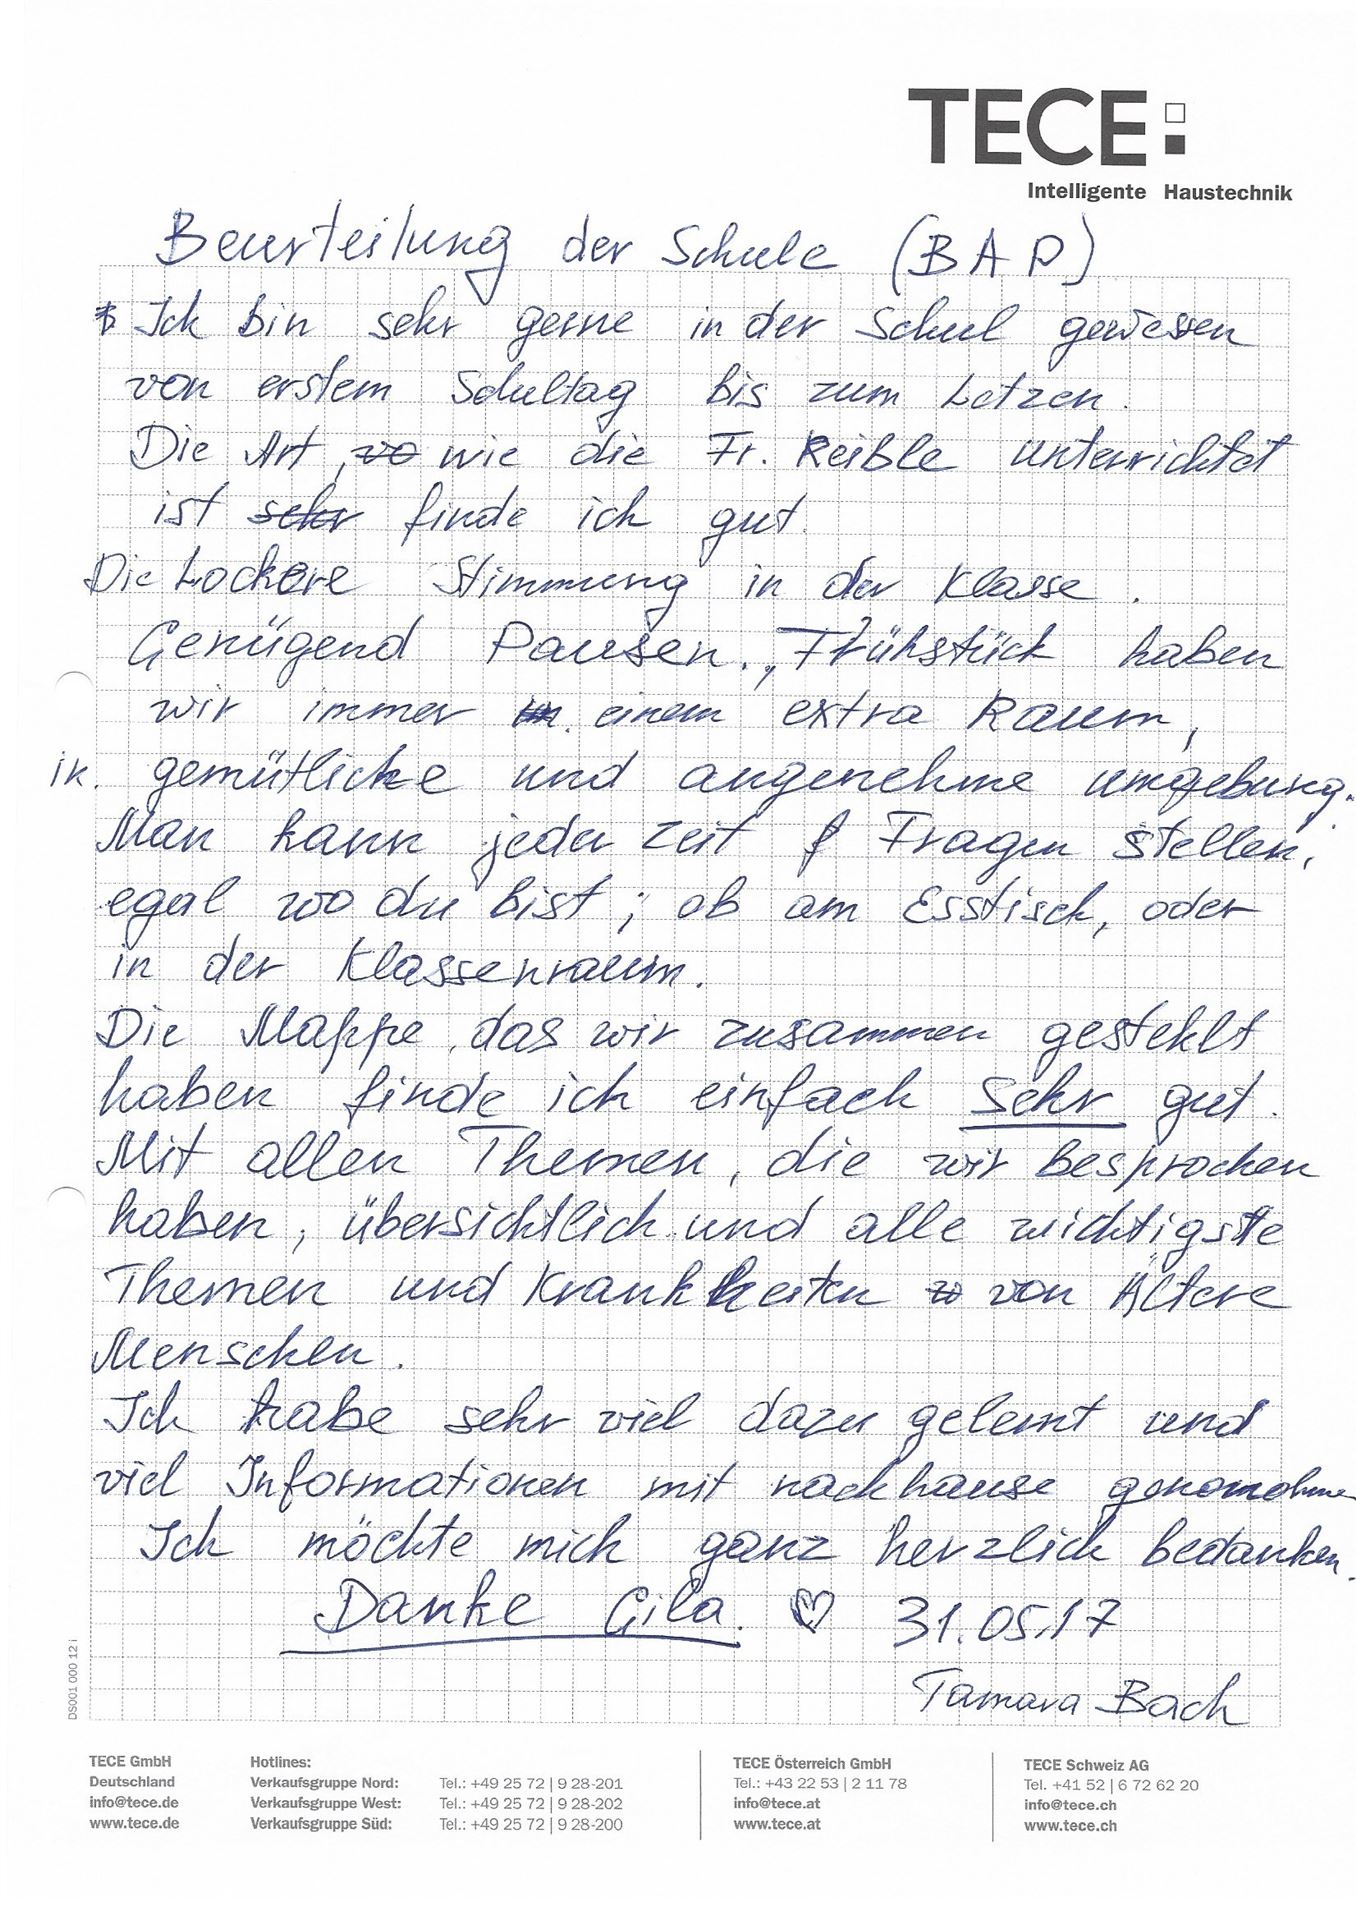 TECE
Intelligente Haustechnik
Beurteilung der Schule (BAP)
Ich bin sehr gerne in der Schul gewesen
von erstem Schultag bis zum Letzen.
Die Art, wie die Fr. Reible unterrichtet
ist finde ich gut.
Die Lockere Stimmung in der Klasse.
Genügend Pausen., Frühstück haben
wir immer einem extra Raum,
in. gemütliche und angenehme umgebung.
Man kann jeder Zeit Fragen stellen,
egal wo du bist; ob am Esstisch, oder
in der Klassenraum.
Die Mappe, das wir zusammen gestehlt
haben finde ich einfach Sehr gut.
Mit allen Themen, die wir besprochen
haben, übersichtlich und alle wichtigste
Themen und Krankheiten von Ältere
Menschen.
Ich habe sehr viel dazu gelernt und
viel Informationen mit nachhause genomohmen
Ich möchte mich ganz herzlich bedanken.
Danke Gila. ♡ 31.05.17
Tamara Bach
DS001 000 12 i
TECE GmbH
Deutschland
info@tece.de
www.tece.de
Hotlines:
Verkaufsgruppe Nord: Tel.: +49 25 72 | 9 28-201
Verkaufsgruppe West: Tel.: +49 25 72 | 9 28-202
Verkaufsgruppe Süd: Tel.: +49 25 72 | 9 28-200
TECE Österreich GmbH
Tel.: +43 22 53 | 2 11 78
info@tece.at
www.tece.at
TECE Schweiz AG
Tel. +41 52 | 6 72 62 20
info@tece.ch
www.tece.ch